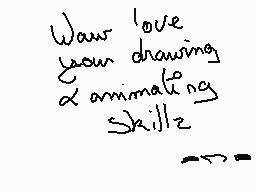 Waw love
your drawing
& animating
skillz